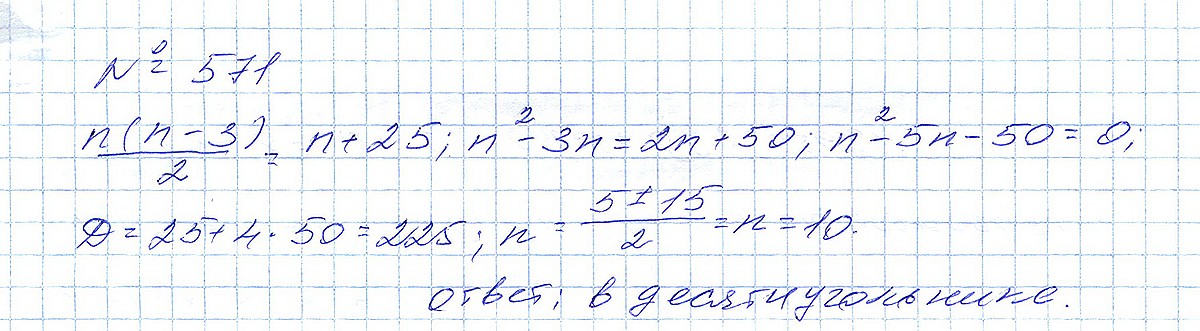 № 571
n(n-3)/2 = n+25; n²-3n=2n+50; n²-5n-50=0;
D=25+4·50=225; n = 5±15/2 = n=10.
ответ: в десятиугольнике.